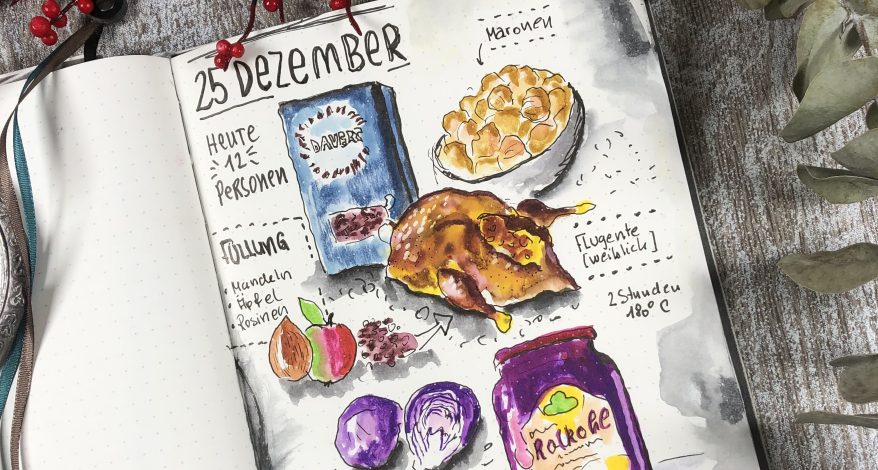 25 DEZEMBER
Maronen
HEUTE
12
PERSONEN
DAVERT
FÜLLUNG
Mandeln
Äpfel
Rosinen
Flugente
[weiblich]
2 Stunden
180° C
Rotkohl